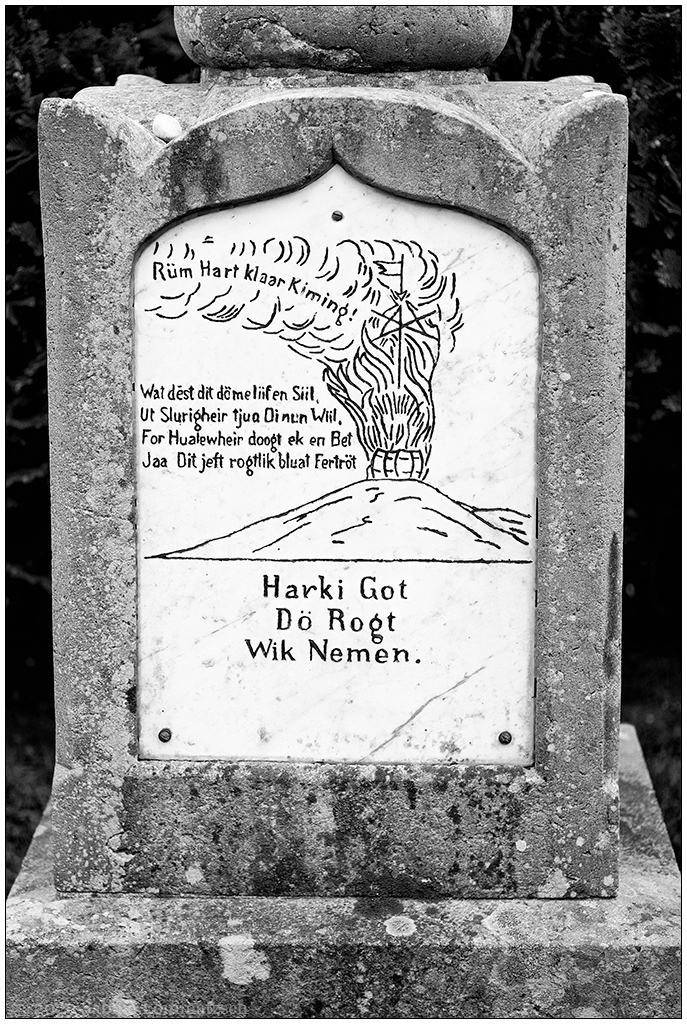 Rüm Hart klaar Kiming!
Wat dēst dit döme liifen Siil,
Ut Slurigheir tjua Oi nun Wiil,
For Hualewheir doogt ek en Bet
Jaa Dit jeft rogtlik bluat Fertröt
Harki Got
Dö Rogt
Wik Nemen.